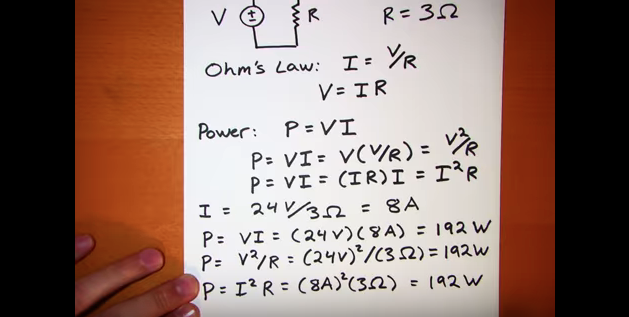 V ± R R = 3Ω
Ohm's Law: I = V/R
V = IR
Power: P = VI
P = VI = V(V/R) = V²/R
P = VI = (IR)I = I²R
I = 24V/3Ω = 8A
P = VI = (24V)(8A) = 192W
P = V²/R = (24V)²/(3Ω) = 192W
P = I²R = (8A)²(3Ω) = 192W